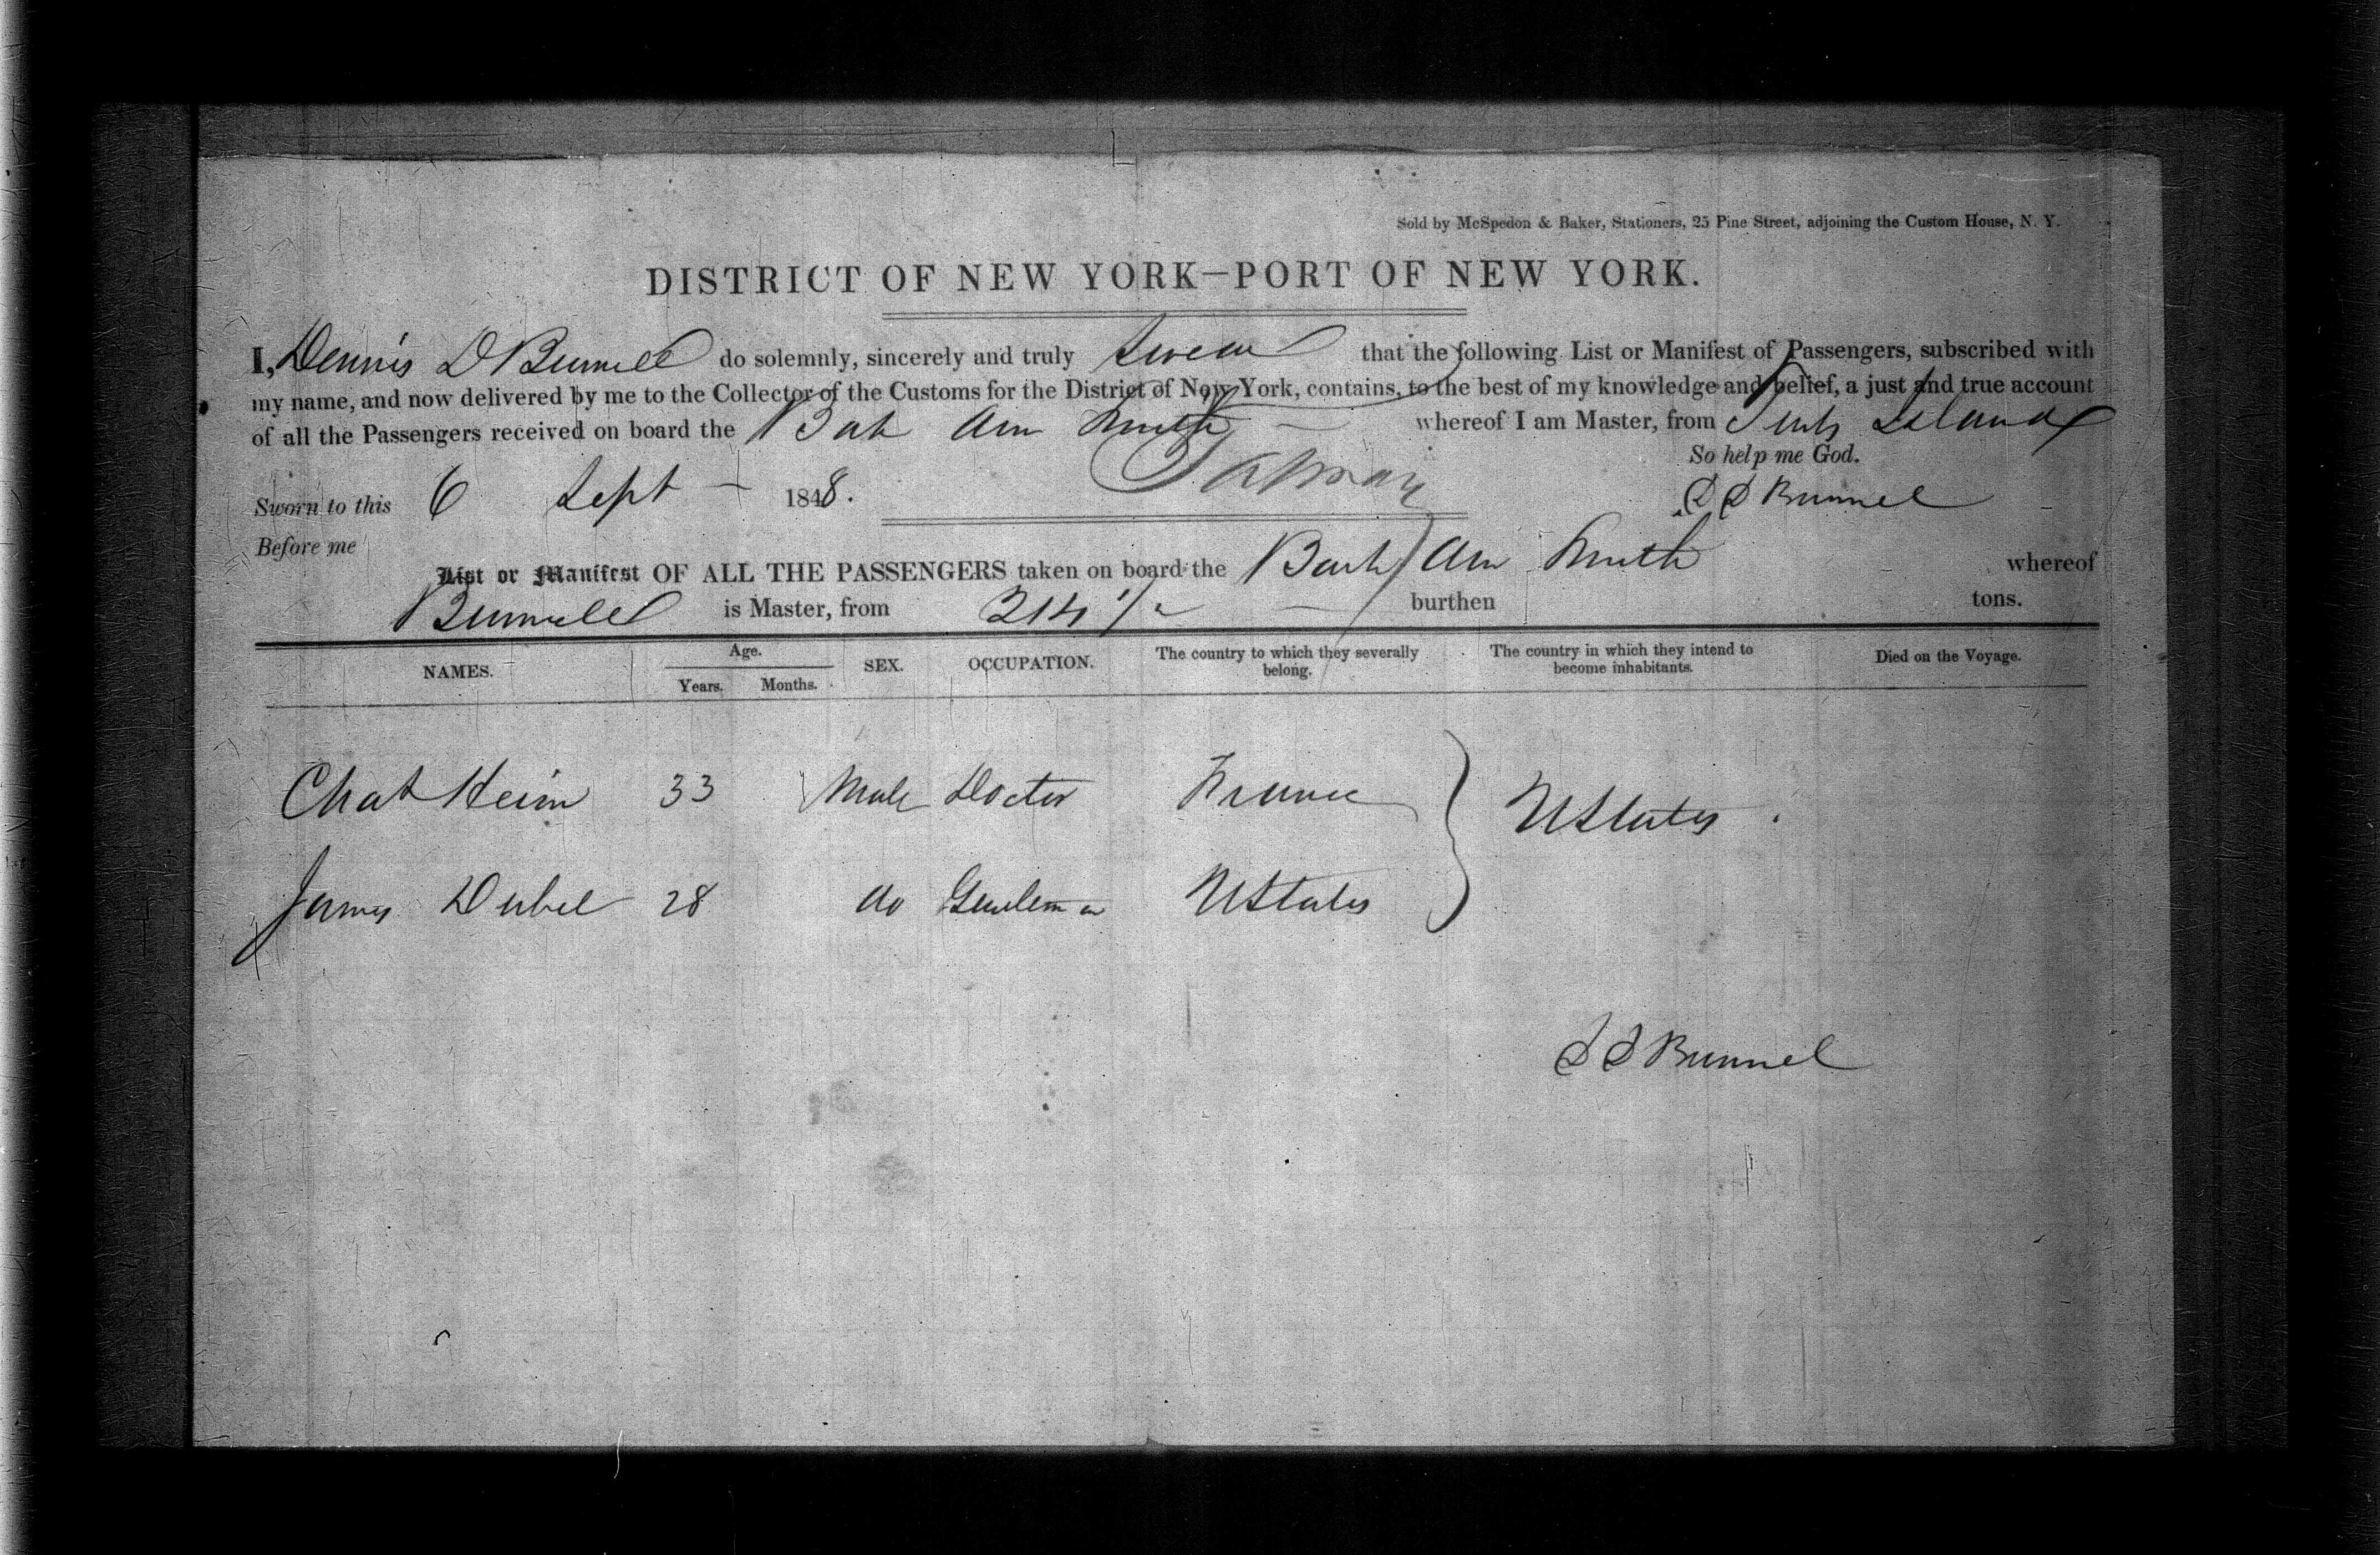 Sold by McSpedon & Baker, Stationers, 25 Pine Street, adjoining the Custom House, N. Y.
DISTRICT OF NEW YORK—PORT OF NEW YORK.
I, Dennis D Bunnell do solemnly, sincerely and truly swear that the following List or Manifest of Passengers, subscribed with
my name, and now delivered by me to the Collector of the Customs for the District of New York, contains, to the best of my knowledge and belief, a just and true account
of all the Passengers received on board the Bark Ann Smith whereof I am Master, from Turks Island
So help me God.
Sworn to this 6 Sept 1848. D D Bunnel
Before me
List or Manifest OF ALL THE PASSENGERS taken on board the Bark Ann Smith whereof
Bunnell is Master, from 214 1/2 burthen tons.
NAMES. Age. SEX. OCCUPATION. The country to which they severally belong. The country in which they intend to become inhabitants. Died on the Voyage.
Years. Months.
Chas Heim 33 Male Doctor France UStates
James 28 do Gentleman UStates
D D Bunnel